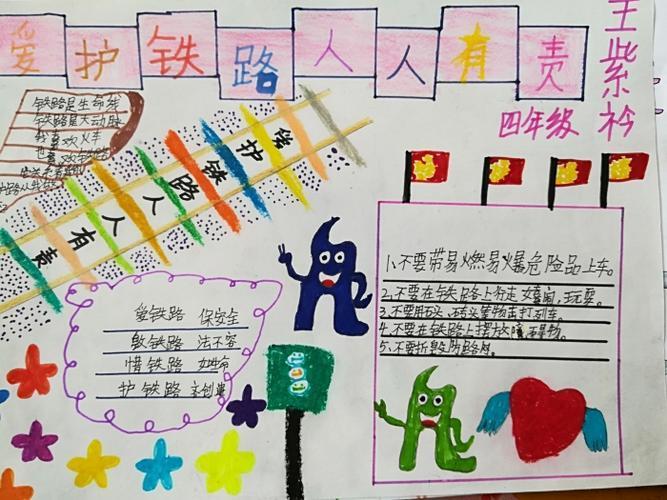 爱护铁路人人有责
王紫衿
四年级
铁路是生命线
铁路是大动脉
我喜欢火车
也喜欢
爱护铁路人人有责
爱铁路 保安全
毁铁路 法不容
惜铁路 如生命
护铁路
1、不要带易燃易爆危险品上车。
2、不要在铁路上行走、嬉闹、玩耍。
3、不要用石头、砖头等物击打列车。
4、不要在铁路上摆放障碍物。
5、不要折毁防路网。